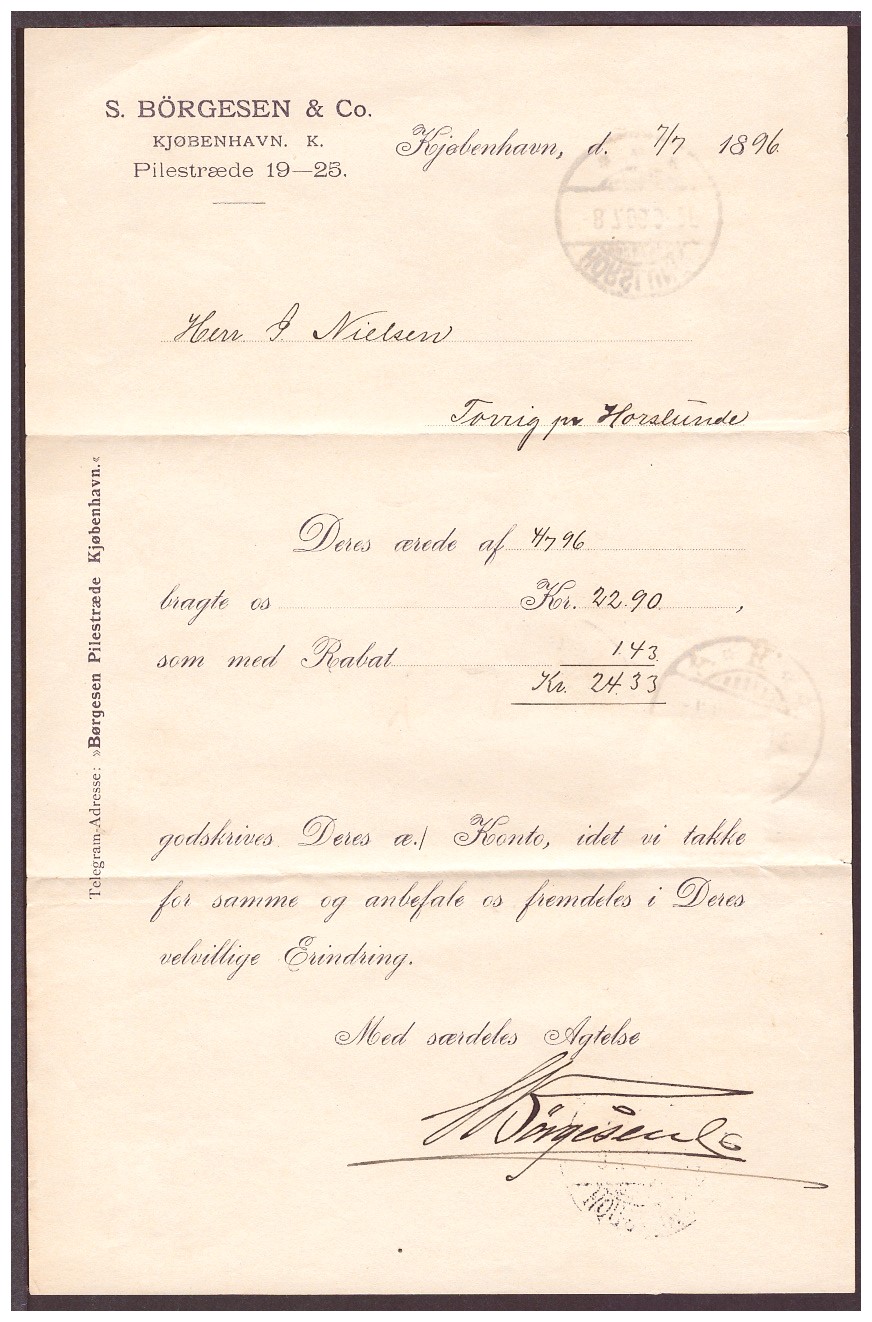 S. BÖRGESEN & Co.
KJØBENHAVN. K.
Pilestræde 19—25.
Kjøbenhavn, d. 7/7 1896
Herr J Nielsen
Torrig pr Horslunde
Telegram-Adresse: »Børgesen Pilestræde Kjøbenhavn.«
Deres ærede af 4/7 96
bragte os Kr. 22.90,
som med Rabat 1.43
Kr. 24.33
godskrives Deres æ./ Konto, idet vi takke
for samme og anbefale os fremdeles i Deres
velvillige Erindring.
Med særdeles Agtelse
S Börgesen & Co